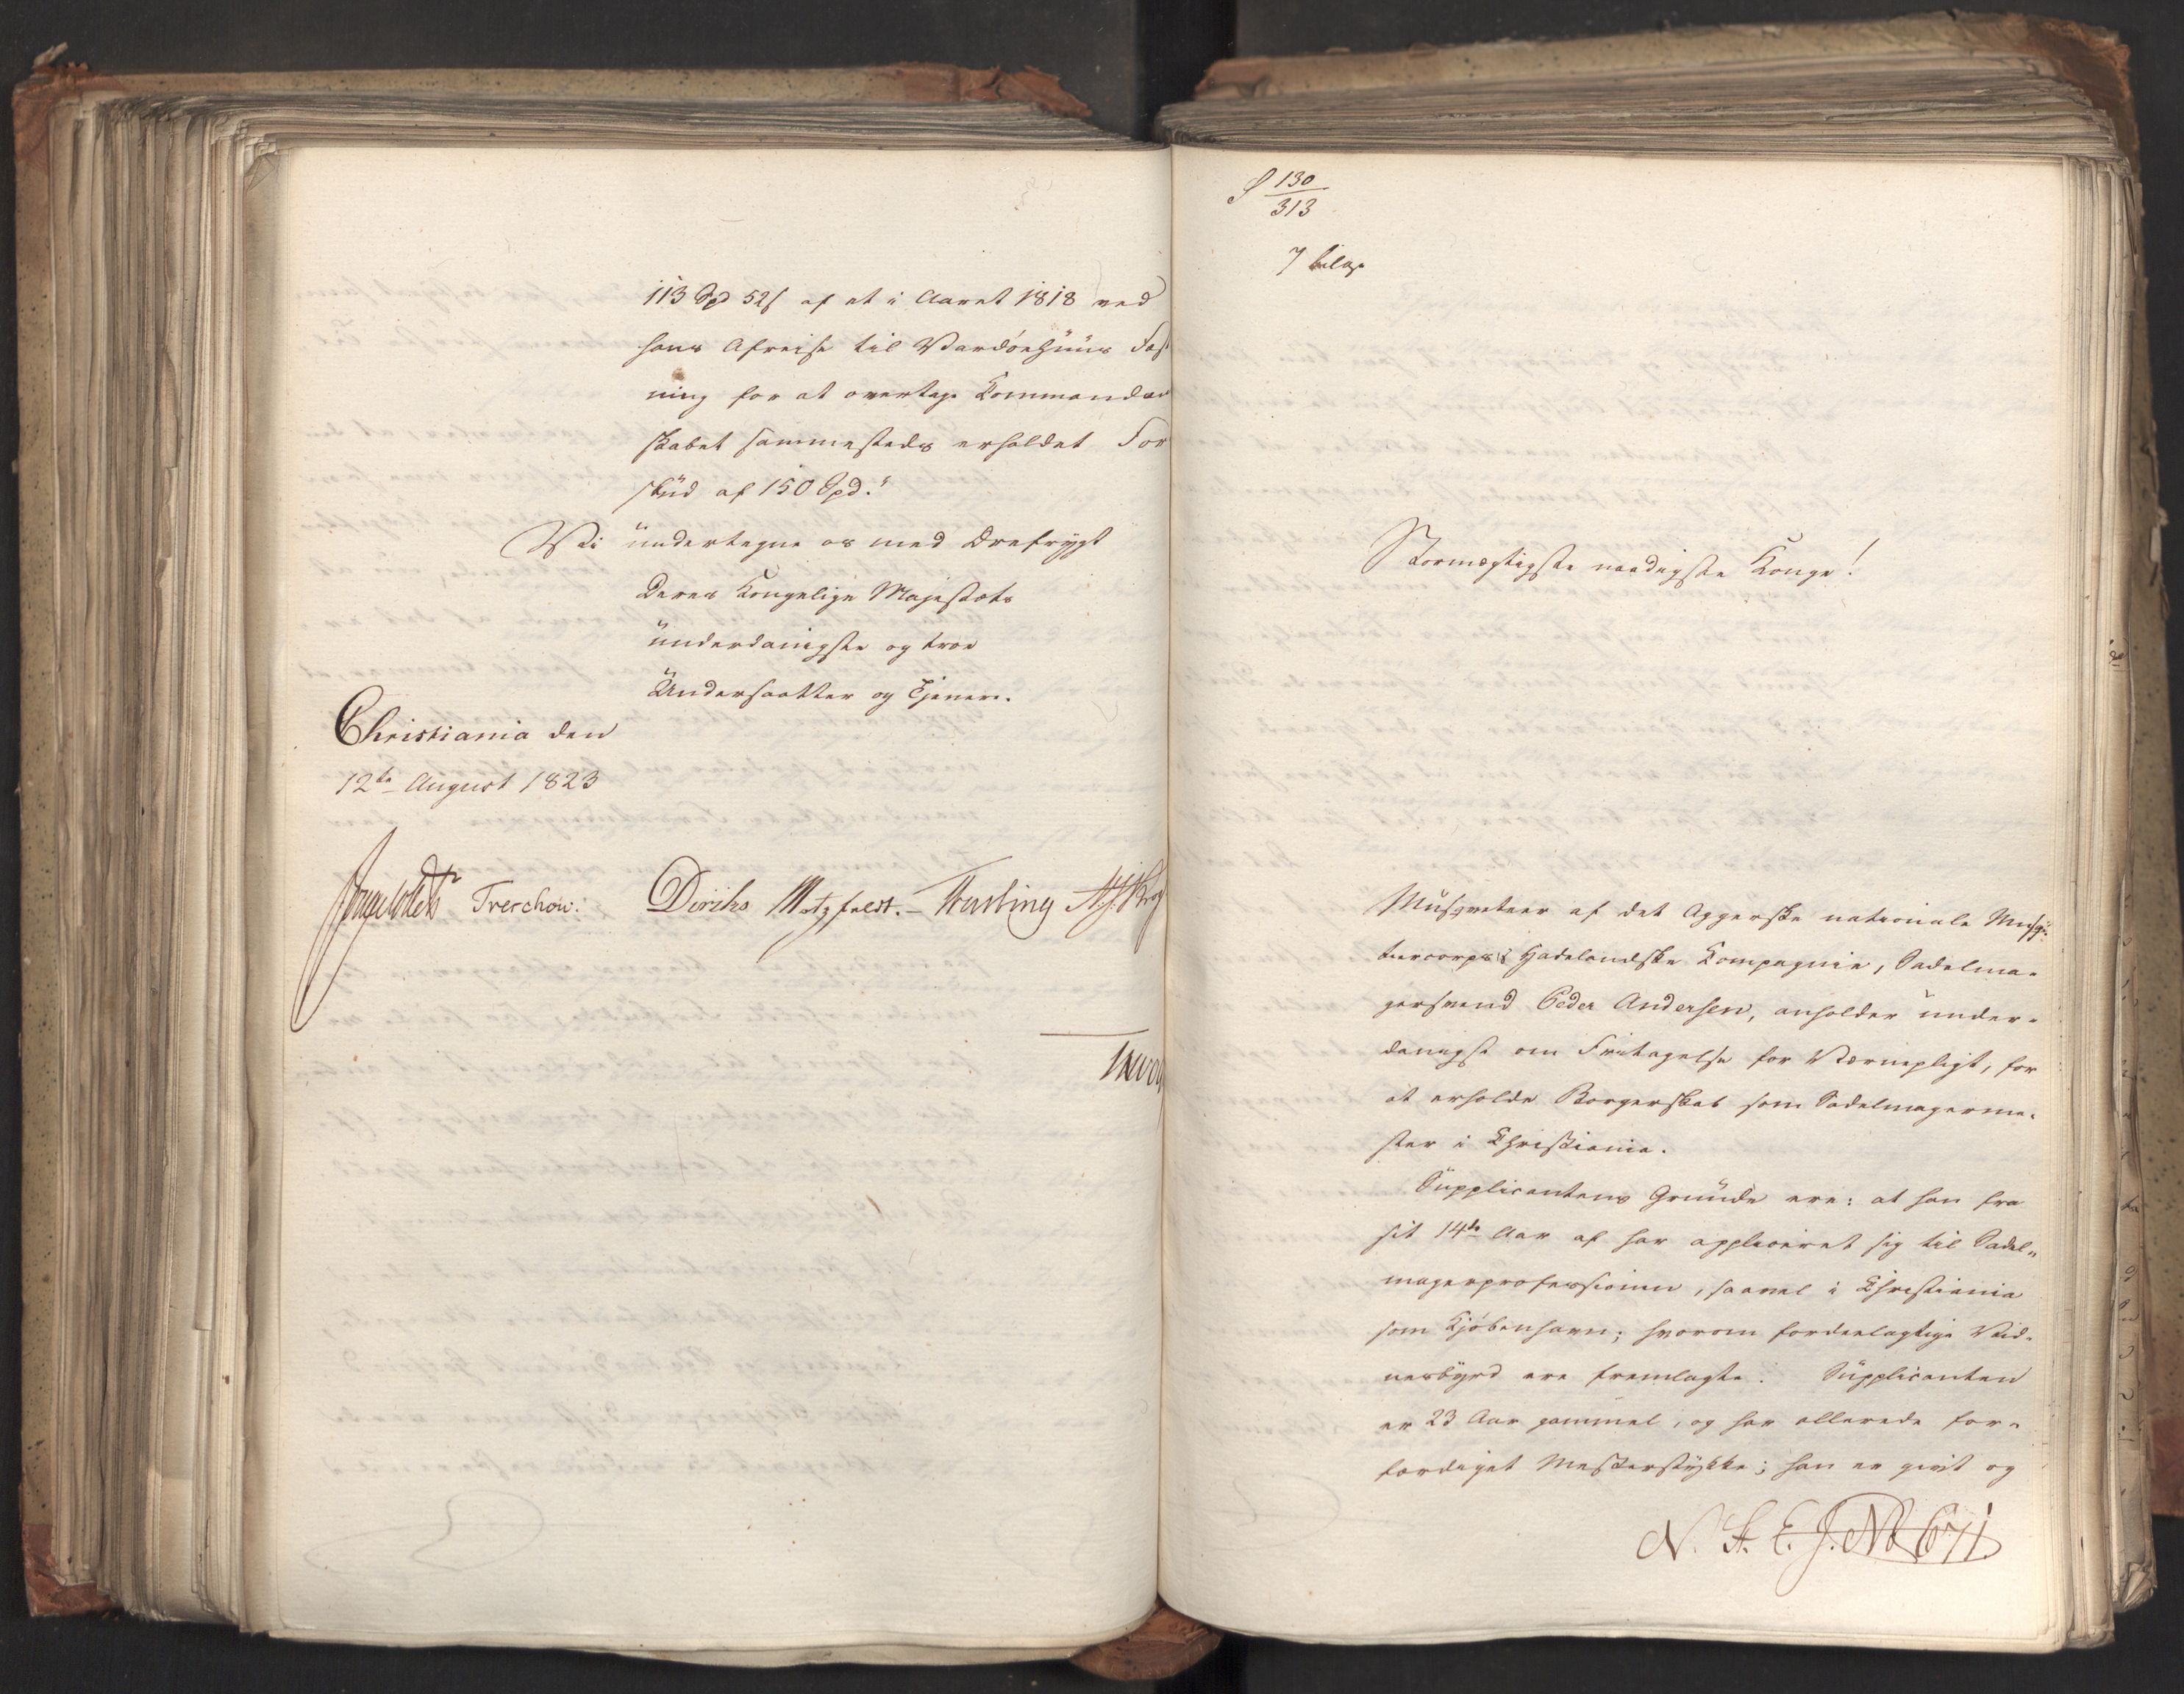 113 Spd 52 s af et i Aaret 1818 ved
hans Afreise til Vardöehuus Fæst
ning for at overtage Kommandant
skabet sammesteds erholdet For
skud af 150 Spd."
Vi undertegne os med Ærefrygt
Deres Kongelige Majestæts
underdanigste og troe
Undersaatter og Tjenere.
Christiania den
12te August 1823
Treschow.
Diriks Motzfeldt. Fasting
S 130
313
7 bilag
Stormægtigste naadigste Konge!
Musqveteer af det Aggerske nationale Musqve
teercorps's Hadelandske Kompagnie, Sadelma-
gersvend Peder Andersen, anholder under-
danigst om Fritagelse for Værnepligt, for
at erholde Borgerskab som Sadelmagerme-
ster i Christiania.
Supplicantens Grunde ere: at han fra
sit 14de Aar af har appliceret sig til Sadel-
magerprofessionen, saavel i Christiania
som Kjöbenhavn; hvorom fordeelagtige Vid-
nesbyrd ere fremlagte. Supplicanten
er 23 Aar gammel, og har allerede for-
færdiget Mesterstykke; han er givt og
N. St. E. J. No 671.